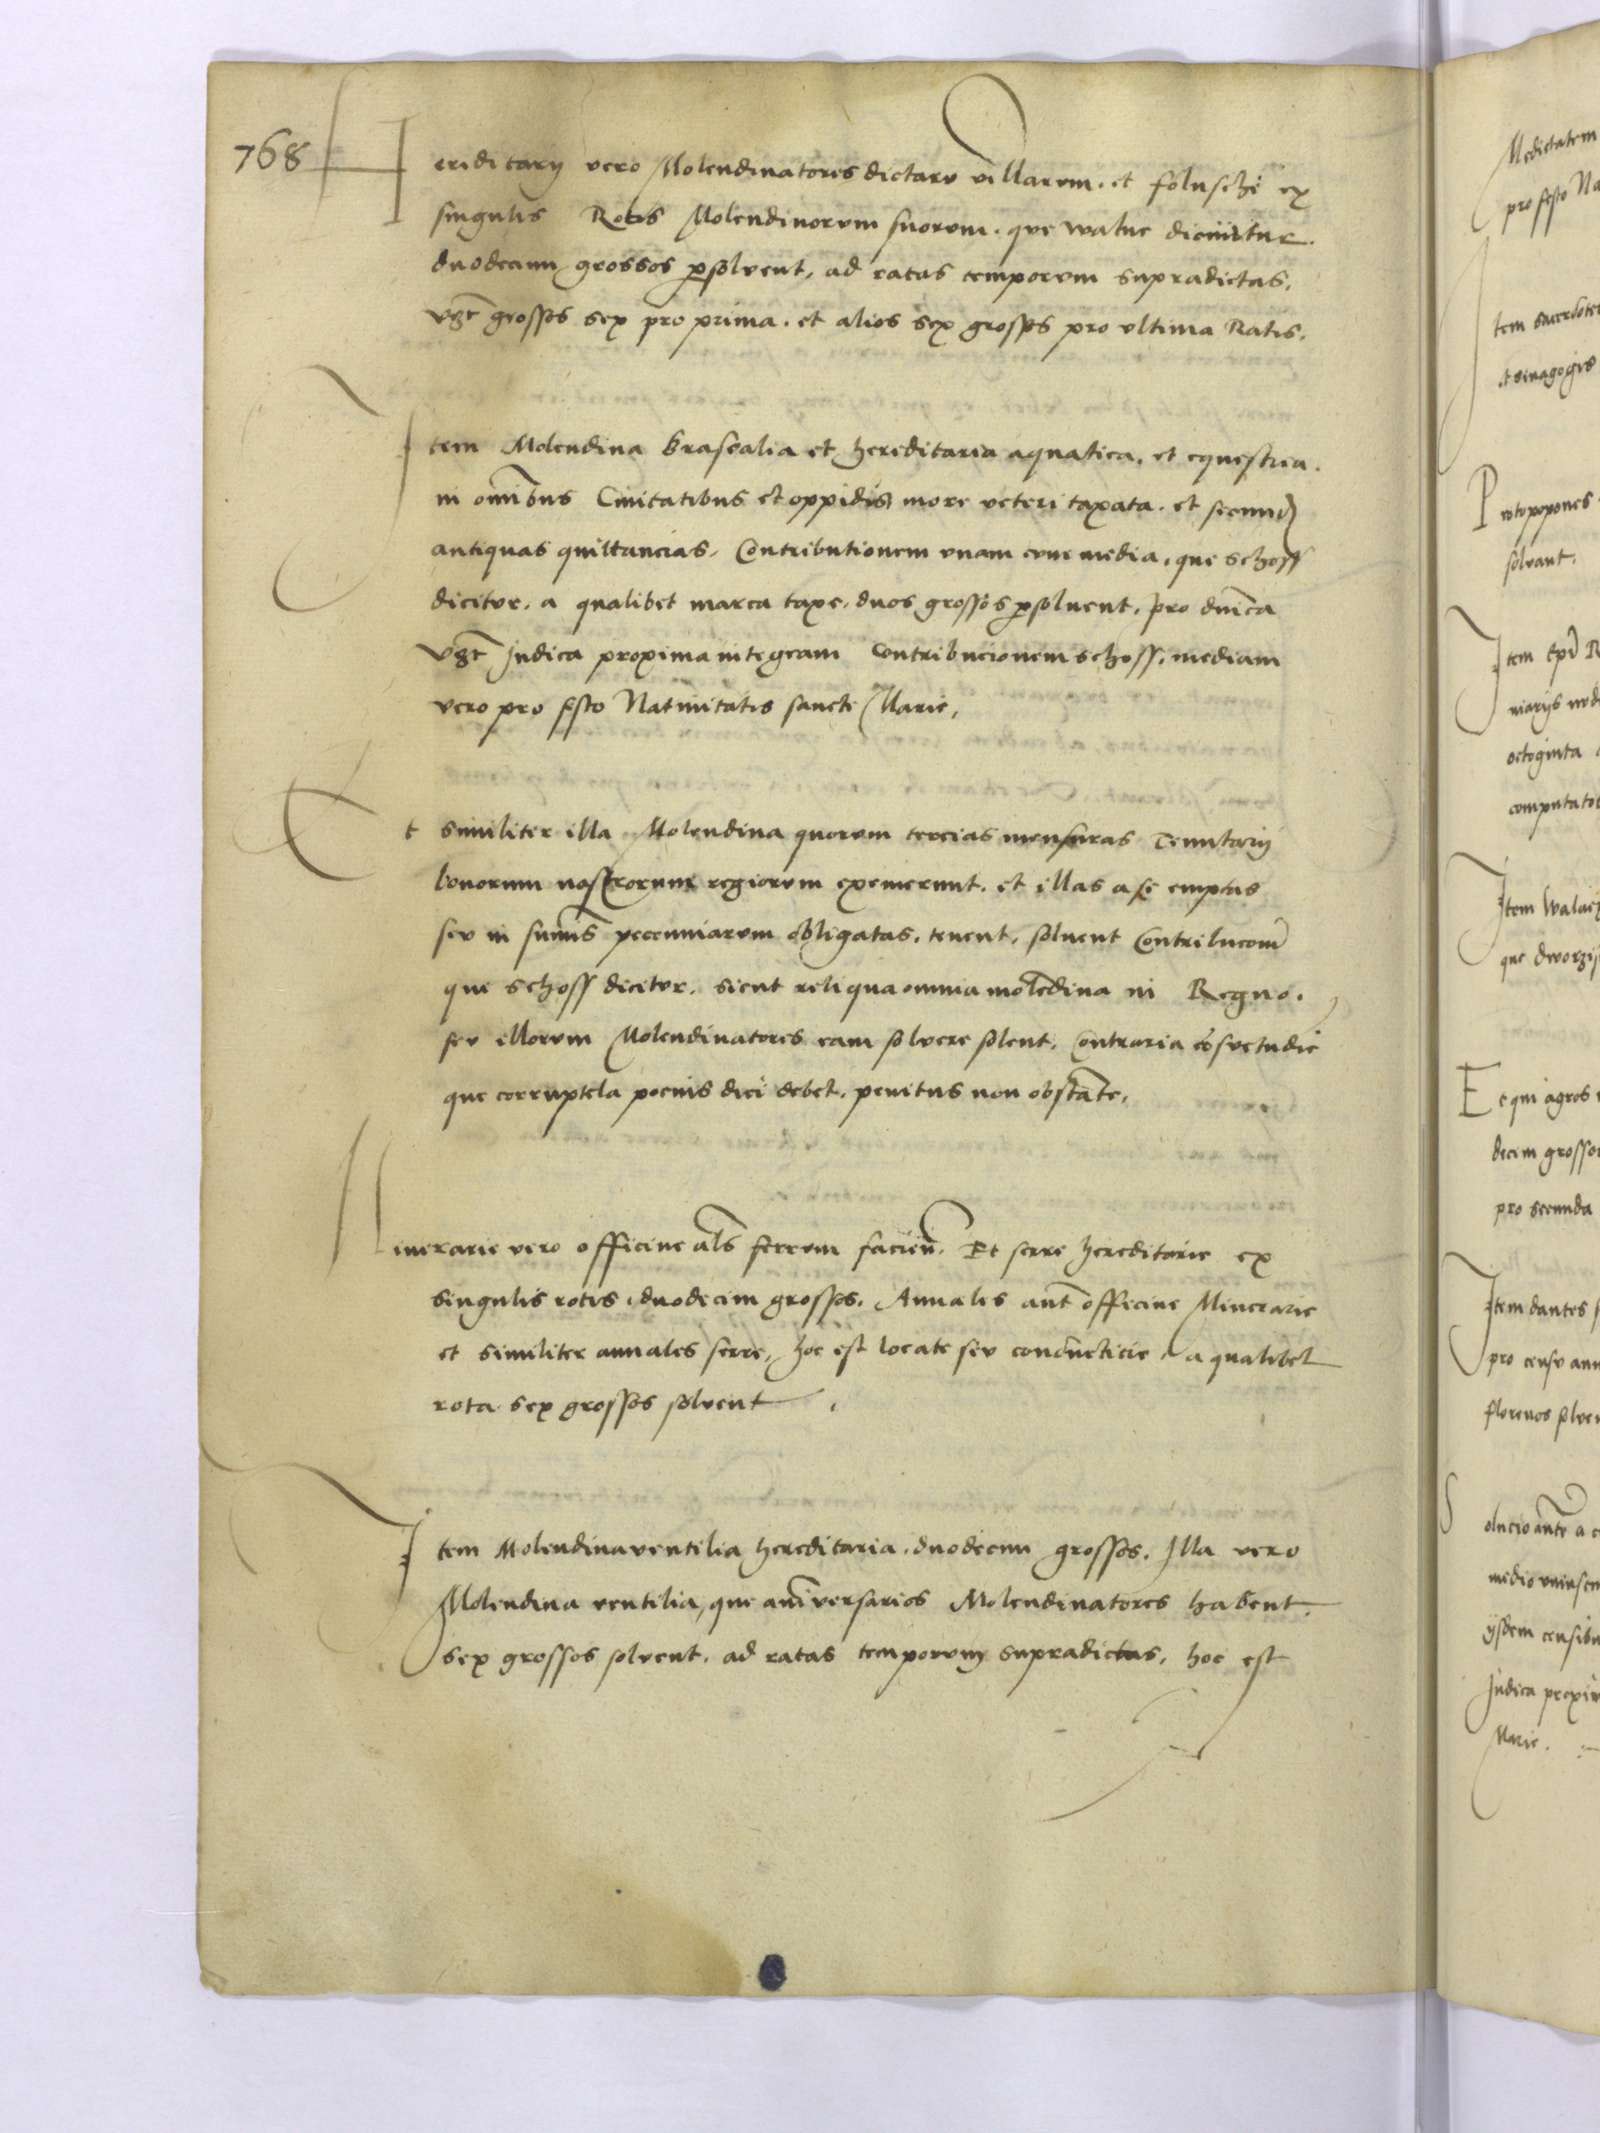 768
Hereditarij vero Molendinatores dictarū villarum. et foluschē ex
singulis Rotis Molendinorum suorum. que walne dicuntur.
duodecim grossos ꝑsolvent, ad ratas temporum supradictas,
vꝫt grossos sex pro prima. et alios sex grossos pro ultima Ratis.
Item Molendina brasealia et hereditaria aquatica, et equestria.
in omībus Civitatibus et oppidis more veteri taxata. et secund
antiquas quittancias, Contributionem vnam cum media, que schoss
dicitur. a qualibet marca taxe, duos grossos ꝑsolvent, pro dnīca
vꝫt Judica proxima integram Contribucionem schoss. mediam
vero pro festo Nativitatis sancte Marie,
Et similiter illa Molendina quorum tercias mensuras Tenutarij
bonorum nostrorum regiorum exemerunt. et illas a se emptas
seu in summīs pecuniarum obligatas, tenent, solvent Contribucoem̄
que schoss dicitur. sicut reliqua omnia molēdina in Regno.
seu illorum Molendinatores eam solvere solent, Contraria cōsuetudīe
que corruptela pocius dici debet, penitus non obstāte,
Minerarie vero officine als̄ ferrum facien̄. Et serre hereditarie ex
singulis rotis, duodecim grossos. Annales aut̄ officine Minerarie
et similiter annales serre, hoc est locate seu conducticie, a qualibet
rota sex grossos solvent.
Item Molendina ventilia hereditaria, duodecim grossos. Illa vero
Molendina ventilia, que anīversarios Molendinatores habent.
sex grossos solvent, ad ratas temporum supradictas, hoc est
Medietatem
pro festo Na
Item sacerdotes
et sinagogis
Protopopones
solvant.
Item Epī R
niarijs
octoginta
computatos
Item Walac
que dworzis
Et qui agros
decem grossos
pro secunda
Item dantes
pro censu ann
florenos solven
Solucio aūte a c
medio
ijsdem censibu
Judica proxim
Marie.